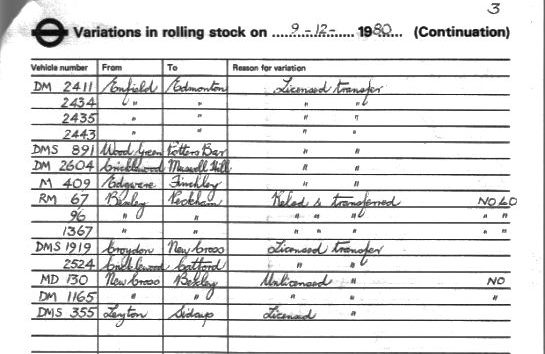 3
Variations in rolling stock on 9-12- 1980 (Continuation)
Vehicle number From To Reason for variation
DM 2411 Enfield Edmonton Licensed transfer
2434 " " " "
2435 " " " "
2443 " " " "
DMS 891 Wood Green Potters Bar " "
DM 2604 Cricklewood Muswell Hill " "
M 409 Edgware Finchley " "
RM 67 Bexley Peckham & transferred NOLO
96 " " " " " " "
1367 " " " " " " "
DMS 1919 Croydon New Cross Licensed transfer
2524 Cricklewood Catford " "
MD 130 New Cross Bexley Unlicensed " NO
DM 1165 " " " " "
DMS 355 Leyton Sidcup Licensed "